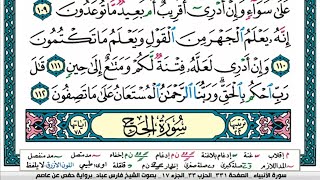 عَلَىٰ سَوَآءٍ وَإِنْ أَدْرِىٓ أَقَرِيبٌ أَم بَعِيدٌ مَّا تُوعَدُونَ ١٠٩
إِنَّهُۥ يَعْلَمُ ٱلْجَهْرَ مِنَ ٱلْقَوْلِ وَيَعْلَمُ مَا تَكْتُمُونَ
١١٠ وَإِنْ أَدْرِى لَعَلَّهُۥ فِتْنَةٌ لَّكُمْ وَمَتَٰعٌ إِلَىٰ حِينٍ ١١١ قَٰلَ
رَبِّ ٱحْكُم بِٱلْحَقِّ وَرَبُّنَا ٱلرَّحْمَٰنُ ٱلْمُسْتَعَانُ عَلَىٰ مَا تَصِفُونَ ١١٢
سُورَةُ الْحَجِّ
سورة الأنبياء الصفحة ٣٣١ الحزب ٣٣ الجزء ١٧ بصوت الشيخ فارس عباد برواية حفص عن عاصم